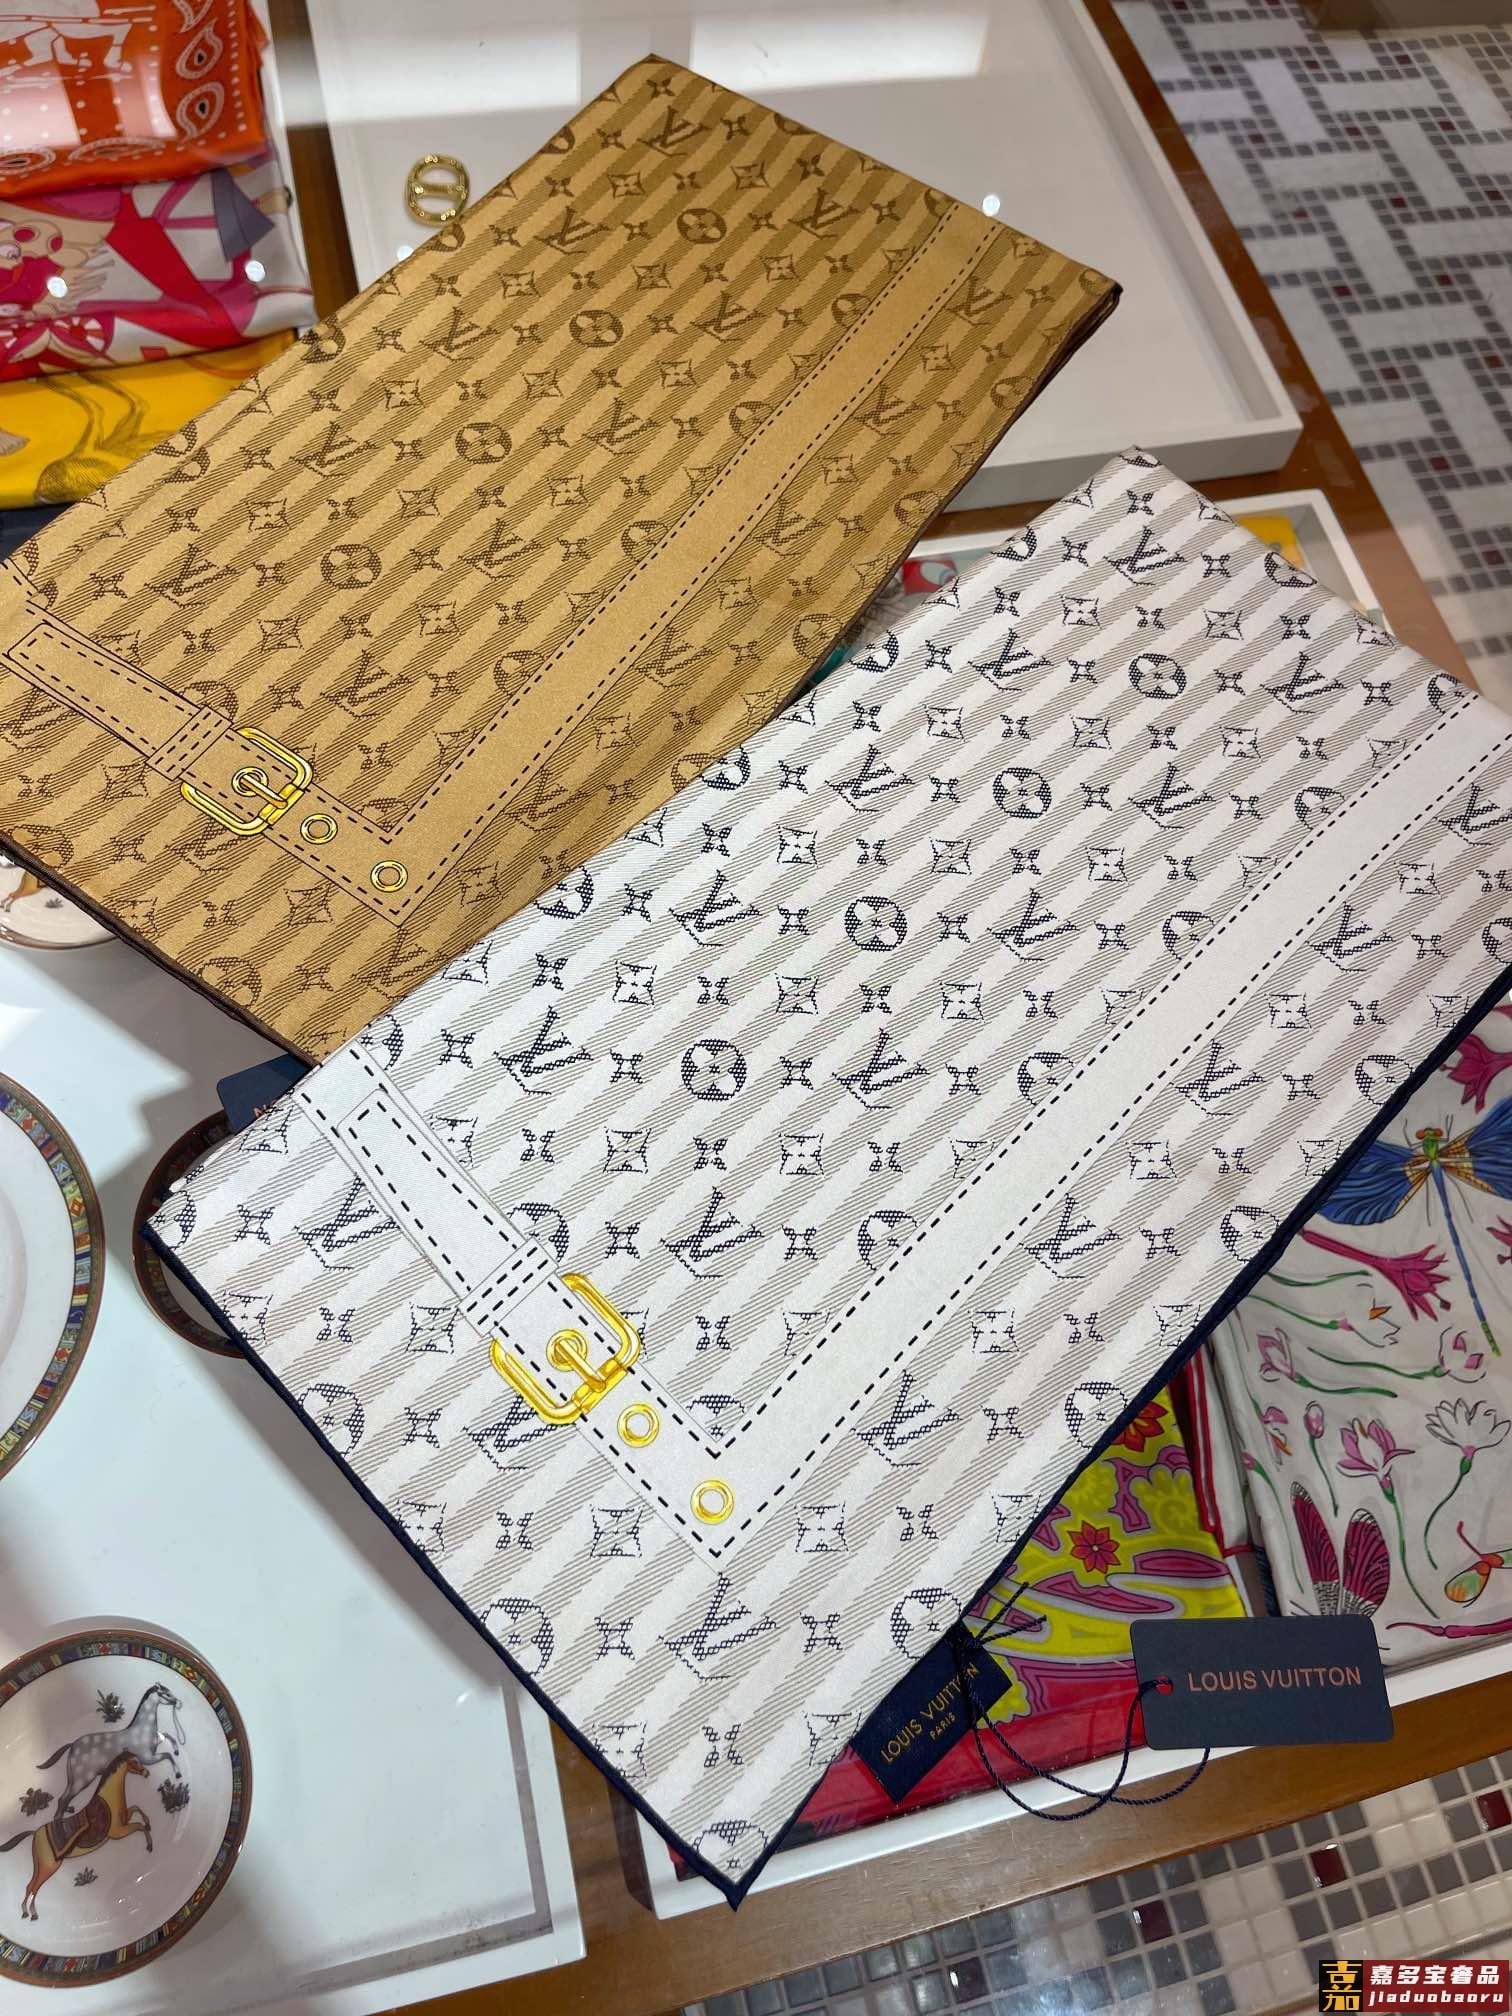 LOUIS VUITTON
PARIS
LOUIS VUITTON
嘉多宝奢品
jiaduobaoru